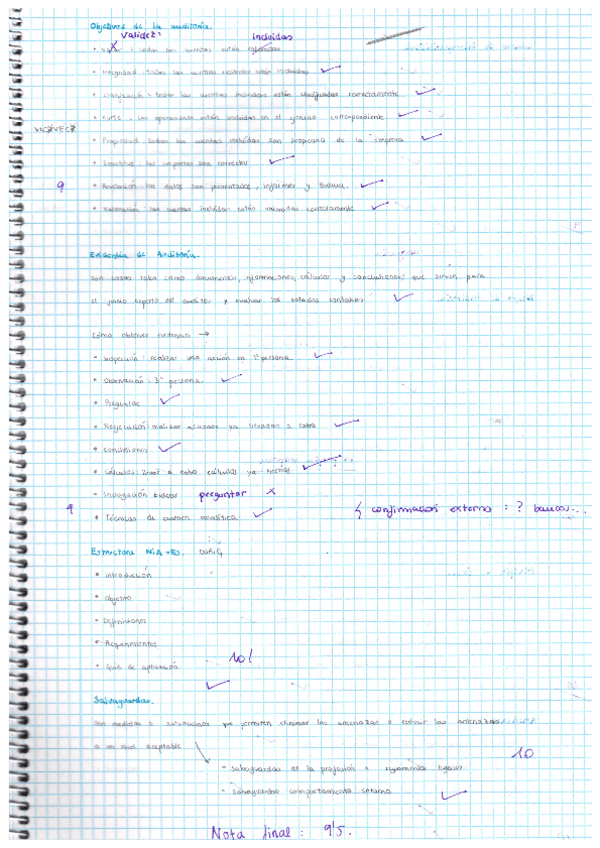 Objetivos de la auditoría.
Validez: incluidas
: todas las cuentas están
• Integridad: todas las cuentas existentes están incluidas
• Clasificación: todas las cuentas incluidas están clasificadas correctamente
• Corte: las operaciones están incluidas en el periodo correspondiente
VICZVECZ
• Propiedad: todas las cuentas incluidas son propiedad de la empresa
• : los importes son correctos
9
• Revelación: los datos son presentados, informes y
• Valoración: las cuentas incluidas están valoradas correctamente
Evidencia de Auditoría.
Son cosas tales como documentos, informaciones, cálculos y conclusiones que sirven para
el juicio experto del auditor y evaluar los estados contables
Cómo obtener evidencias →
• Inspección: realizar una acción en 1ª persona
• Observación: 3ª persona.
• Preguntas
• Reejecución: realizar ya llevados a cabo
•
• Cálculos: llevar a cabo cálculos ya hechos
• Indagación: buscar preguntar X
9
• Técnicas de examen analítico
↳ confirmación externa: ? bancos...
Estructura NIA-ES.
• Introducción
• Objetivo
• Definiciones
• Requerimientos
• Guía de aplicación
10!
Salvaguardas.
Son medidas o que permiten eliminar las amenazas o reducir las amenazas
a un nivel aceptable
10
- Salvaguardas de la profesión o
- Salvaguardas comportamiento
Nota final: 9'5.